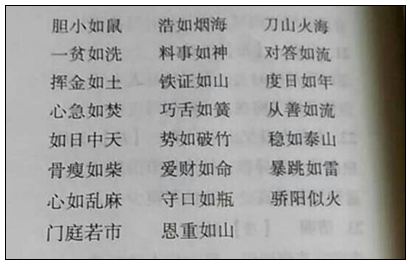 胆小如鼠 浩如烟海 刀山火海
一贫如洗 料事如神 对答如流
挥金如土 铁证如山 度日如年
心急如焚 巧舌如簧 从善如流
如日中天 势如破竹 稳如泰山
骨瘦如柴 爱财如命 暴跳如雷
心如乱麻 守口如瓶 骄阳似火
门庭若市 恩重如山